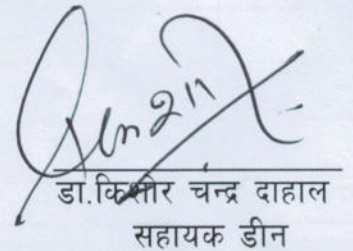 डा.किशोर चन्द्र दाहाल
सहायक डीन